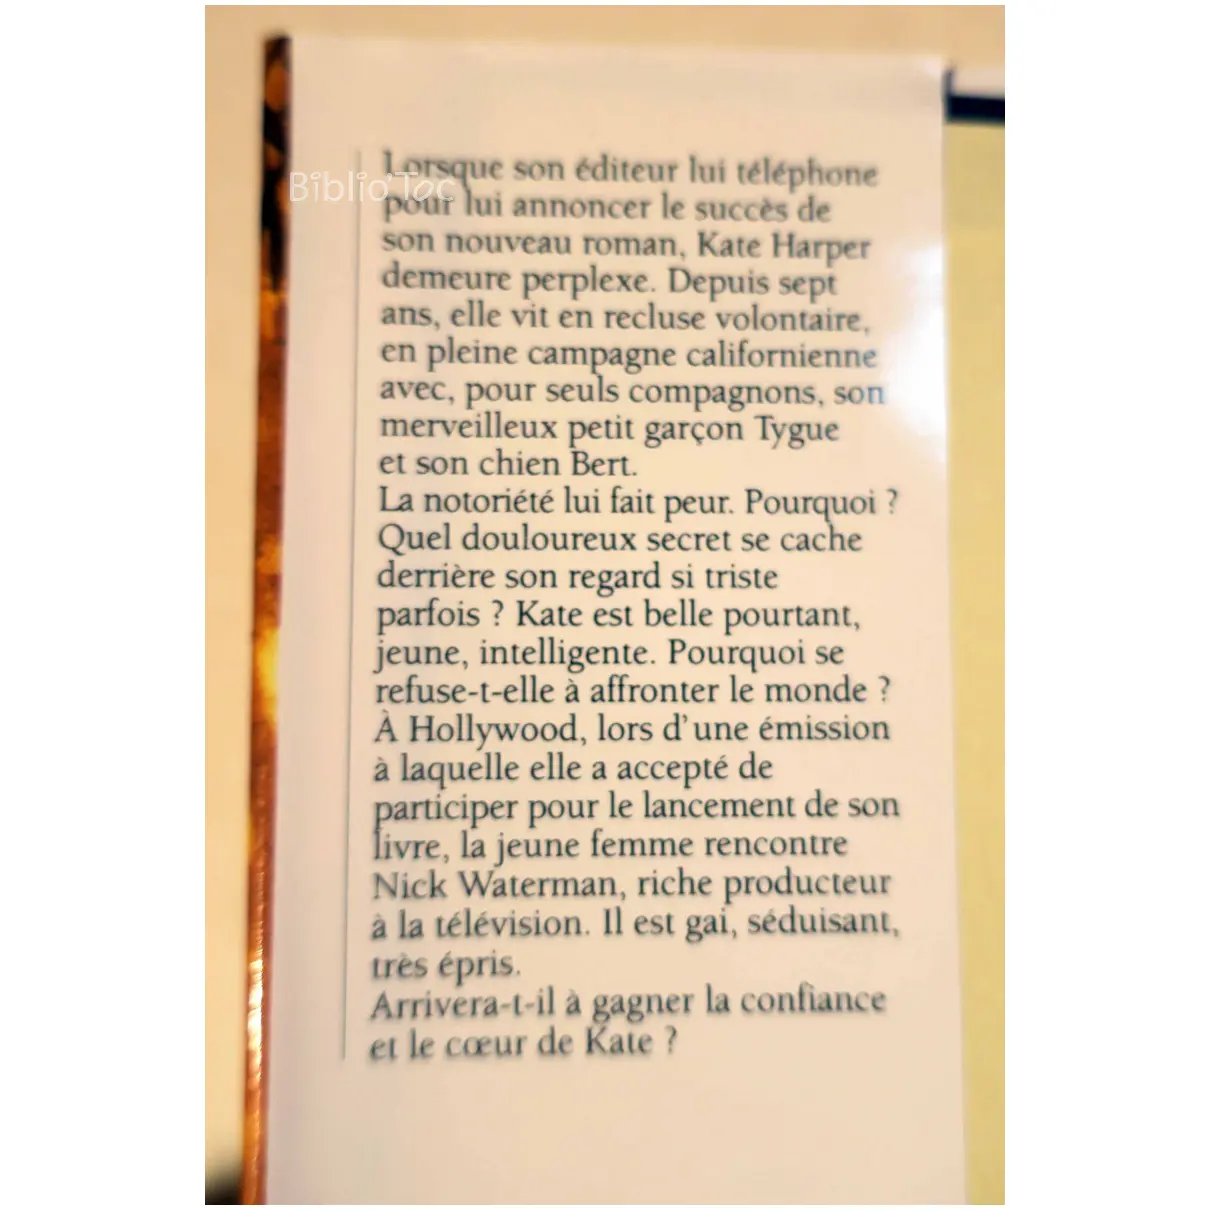 Biblio'Toc
Lorsque son éditeur lui téléphone
pour lui annoncer le succès de
son nouveau roman, Kate Harper
demeure perplexe. Depuis sept
ans, elle vit en recluse volontaire,
en pleine campagne californienne
avec, pour seuls compagnons, son
merveilleux petit garçon Tygue
et son chien Bert.
La notoriété lui fait peur. Pourquoi ?
Quel douloureux secret se cache
derrière son regard si triste
parfois ? Kate est belle pourtant,
jeune, intelligente. Pourquoi se
refuse-t-elle à affronter le monde ?
À Hollywood, lors d'une émission
à laquelle elle a accepté de
participer pour le lancement de son
livre, la jeune femme rencontre
Nick Waterman, riche producteur
à la télévision. Il est gai, séduisant,
très épris.
Arrivera-t-il à gagner la confiance
et le cœur de Kate ?